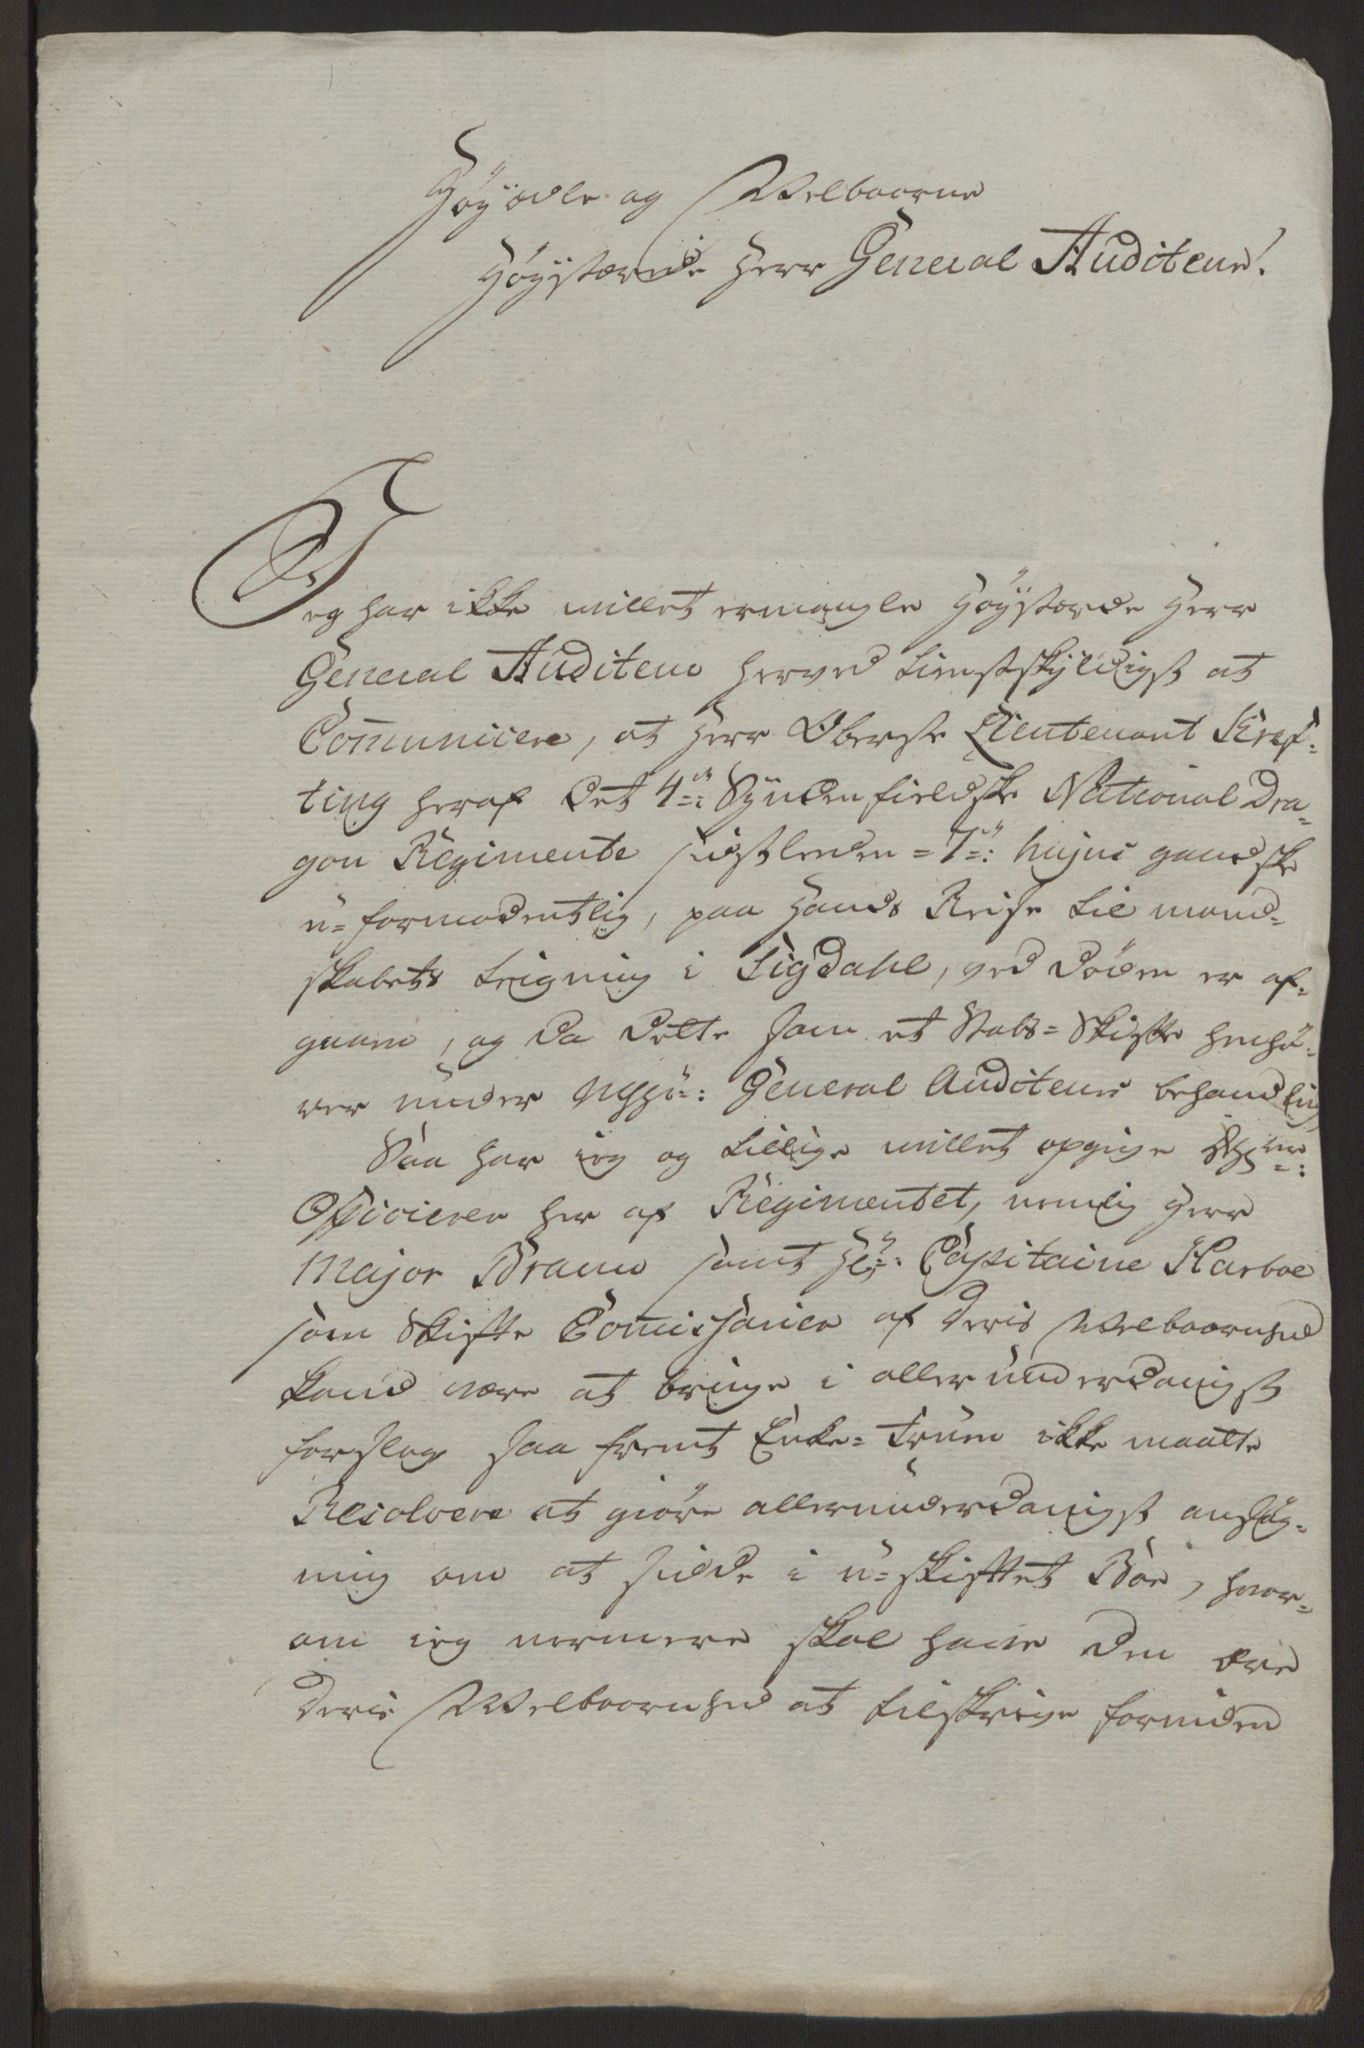 Høyædle og Welbaarne
Høystærede Herr General Auditeur!
Jeg har ikke willet ermangle Høystærede Herr
General Auditeur herved tienstskyldigst at
Com̅unicere, at Herr Oberste Lieutenant Kref-
ting heraf det 4de: Syndenfieldske National Dra-
gon Regimente sidstleden 7de: hujus gandske
u-formodentlig, paa Hands Reise til mand-
skabets teigning i Sigdahl, ved døden er af-
gaaen, og da dette som et Stabs-Skifte henhø-
rer under General Auditeurs behandling
Saa har ieg og tillige willet opgive
Officierer her af Regimentet, nemlig Herr
Major Braun samt Hr: Capitaine Harboe
som Skifte Com̅issarier af Deris Welbaarnhed
kand være at bringe i allerunderdanigst
forslag saa fremt Enke-Fruen ikke maatte
Resolvere at giøre allerunderdanigst ansøg-
ning om at sidde i u-skiftet Boe, hvor-
om ieg nermere skal have den ære
Deris Welbaarnhed at tilskrive foruden